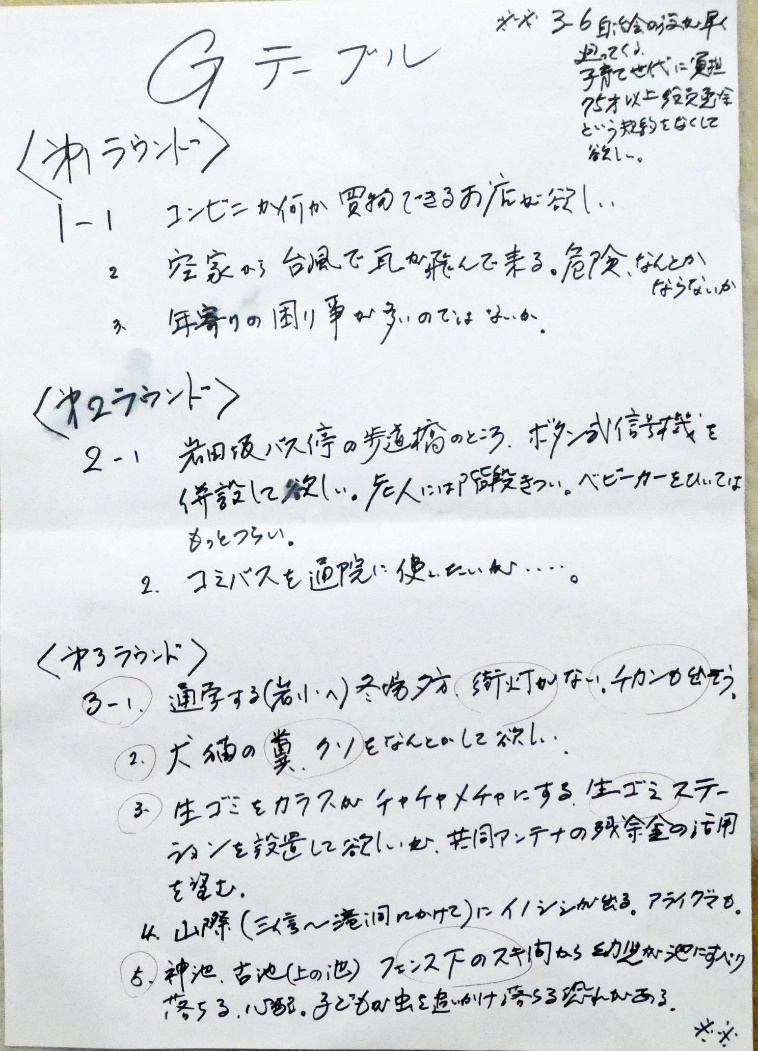 Gテーブル
※※ 3-6 自治会の役が早く
廻ってくる
子育て世代に負担
75才以上役員免除
という規約をなくして
欲しい。
〈第1ラウンド〉
1-1 コンビニか何か買物できるお店が欲しい
2 空家から台風で瓦が飛んで来る。危険、なんとか
ならないか
3. 年寄りの困り事が多いのではないか。
〈第2ラウンド〉
2-1 岩田坂バス停の歩道橋のところ、ボタン式信号機を
併設して欲しい。老人には階段きつい。ベビーカーをひいては
もっとつらい。
2. コミバスを通院に使いたいが……。
〈第3ラウンド〉
3-1. 通学する(岩小へ)冬場夕方、街灯がない。チカンも出そう。
2. 犬猫の糞、クソをなんとかして欲しい。
3. 生ゴミをカラスがチャチャメチャにする。生ゴミステー
ションを設置して欲しいが、共同アンテナの残余金の活用
を望む。
4. 山際(三信〜滝洞にかけて)にイノシシが出る。アライグマも。
5. 神池、古池(上の池)フェンス下のスキ間から幼児が池にすべり
落ちる、心配。子どもが虫を追いかけ落ちる恐れがある。
※※